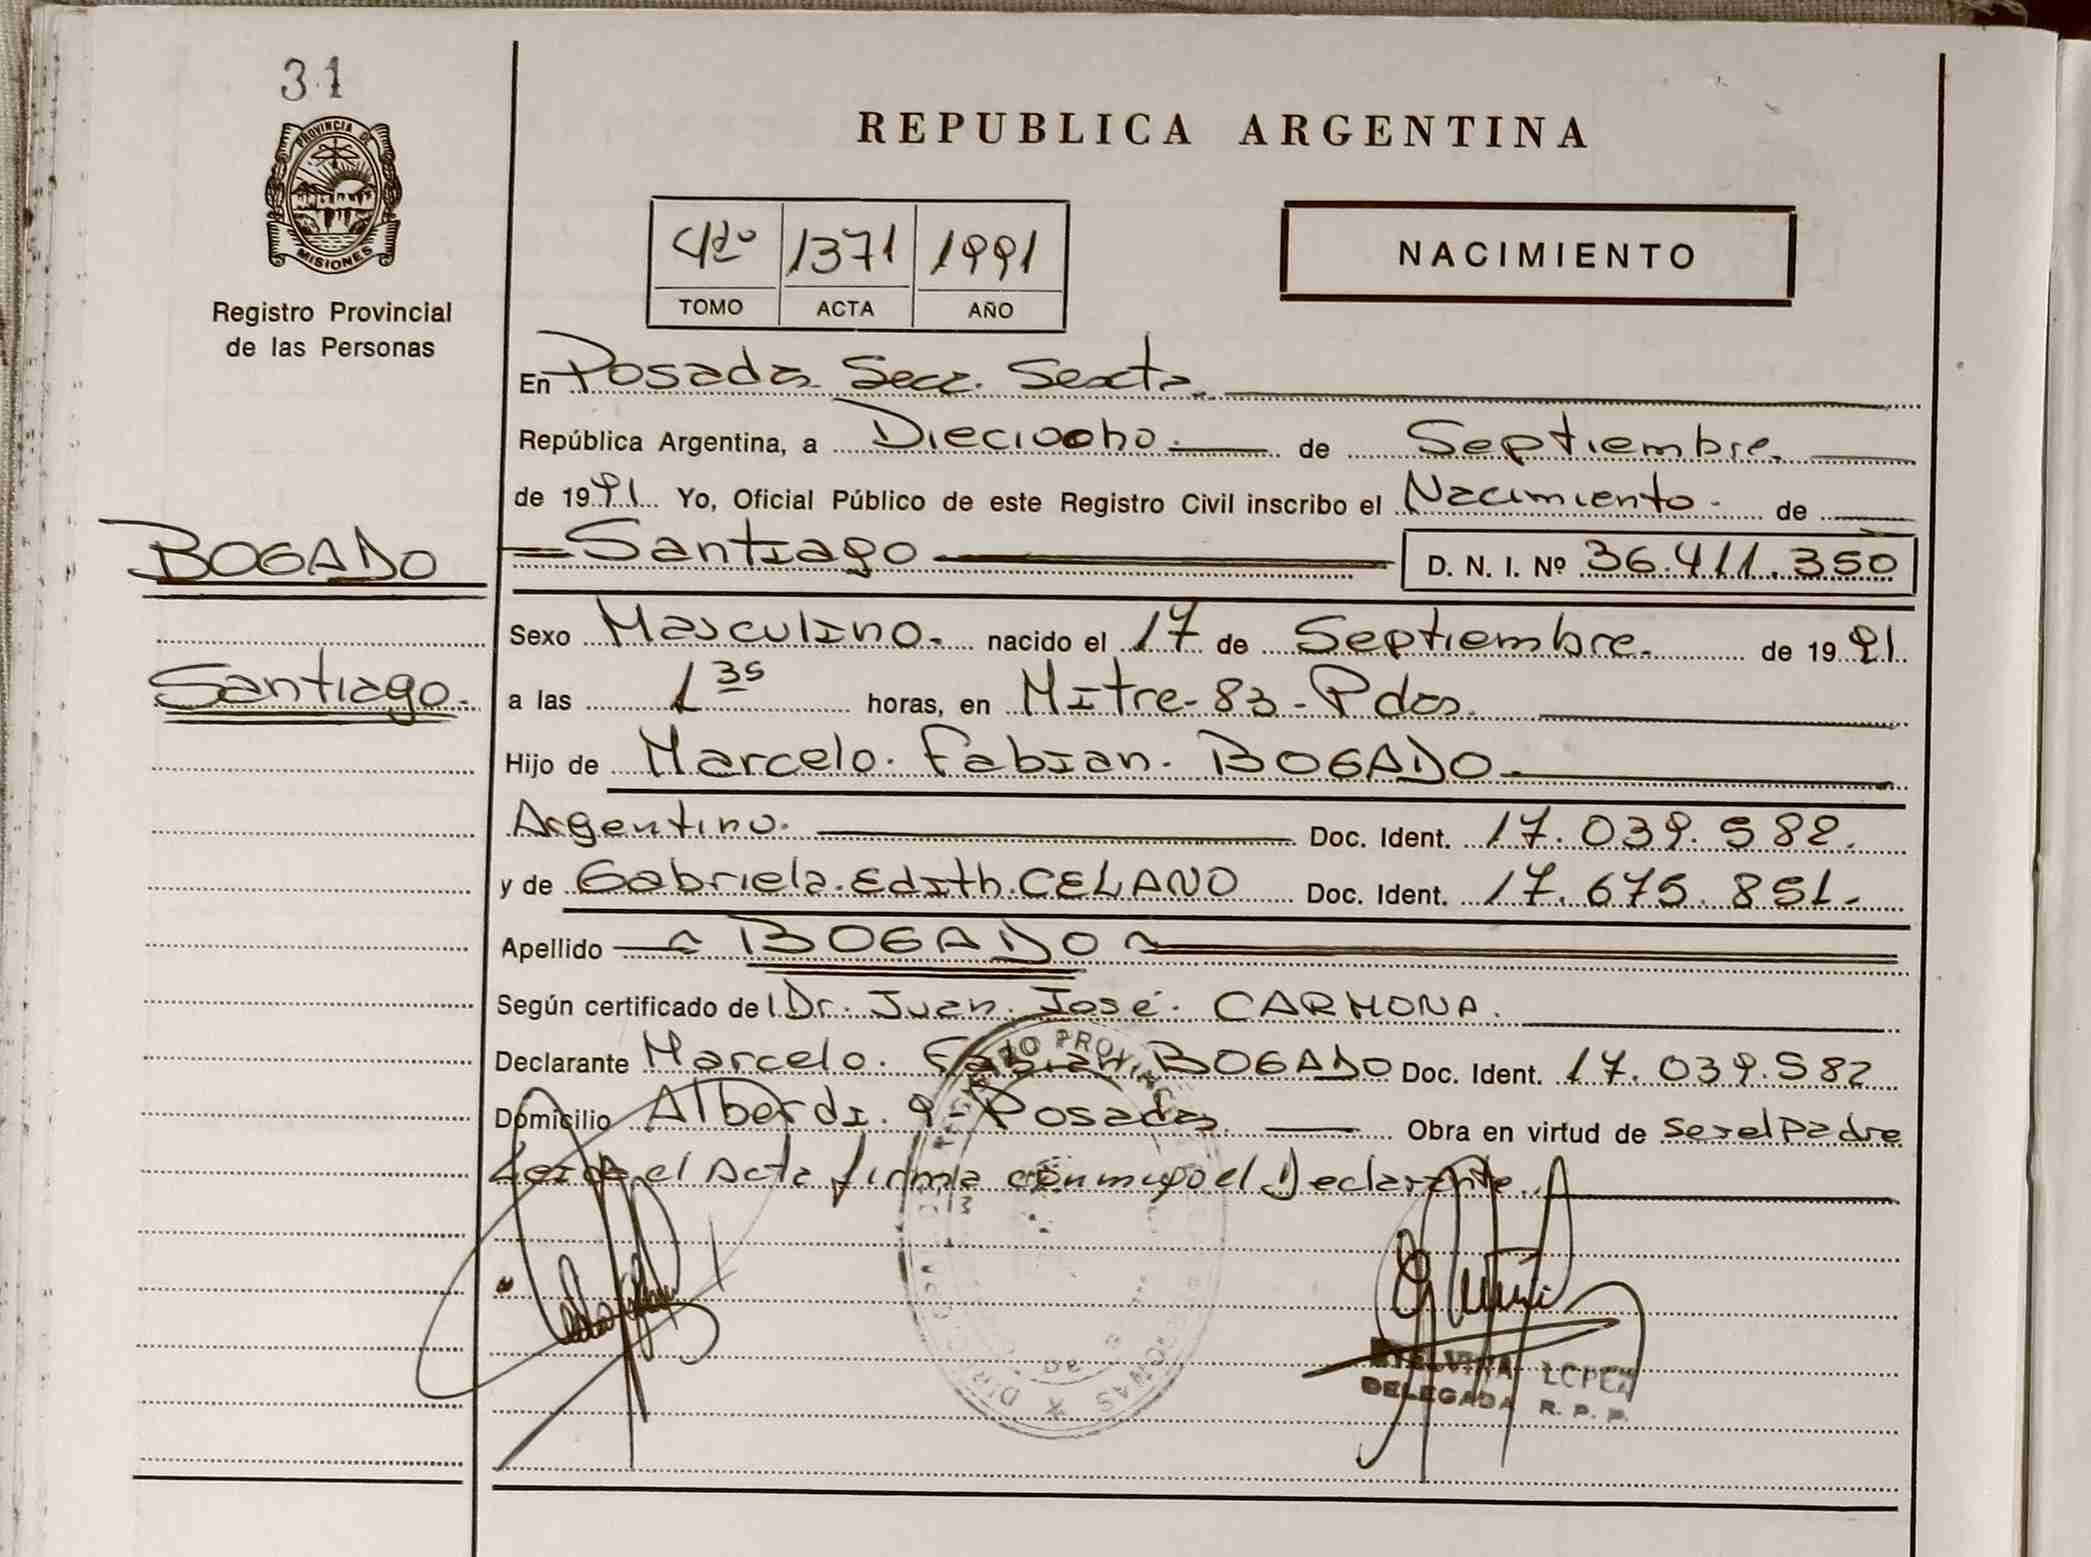 31
PROVINCIA DE
MISIONES
Registro Provincial
de las Personas
REPUBLICA ARGENTINA
4to 1371 1991
TOMO ACTA AÑO
NACIMIENTO
En Posadas Secc. Sexta
República Argentina, a Dieciocho. de Septiembre.
de 1991 Yo, Oficial Público de este Registro Civil inscribo el Nacimiento. de
BOGADO
Santiago
D. N. I. Nº 36.411.350
Sexo Masculino. nacido el 17 de Septiembre. de 1991.
Santiago.
a las 1 35 horas, en Mitre-83-Pdas.
Hijo de Marcelo. Fabian. BOGADO
Argentino. Doc. Ident. 17.039.582.
y de Gabriela.Edith.CELANO Doc. Ident. 17.675.851.
Apellido BOGADO
Según certificado del Dr. Juan. José. CARMONA.
Declarante Marcelo. Fabian. BOGADO Doc. Ident. 17.039.582
Domicilio Alberdi. 9-Posadas Obra en virtud de ser el padre
Leida el Acta firma conmigo el Declarante.
LOPEZ
DELEGADA R. P. P.